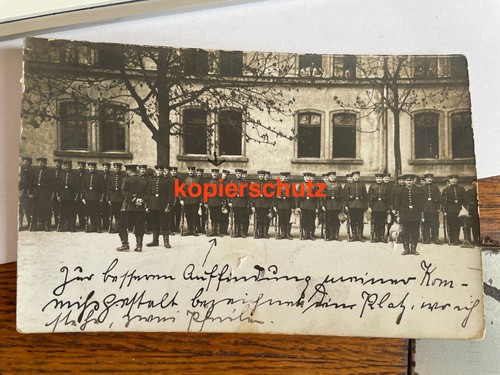 kopierschutz
Zur besseren Auffindung meiner Kom-
mißgestalt bezeichnet den Platz, wo ich
stehe, zwei Pfeile.